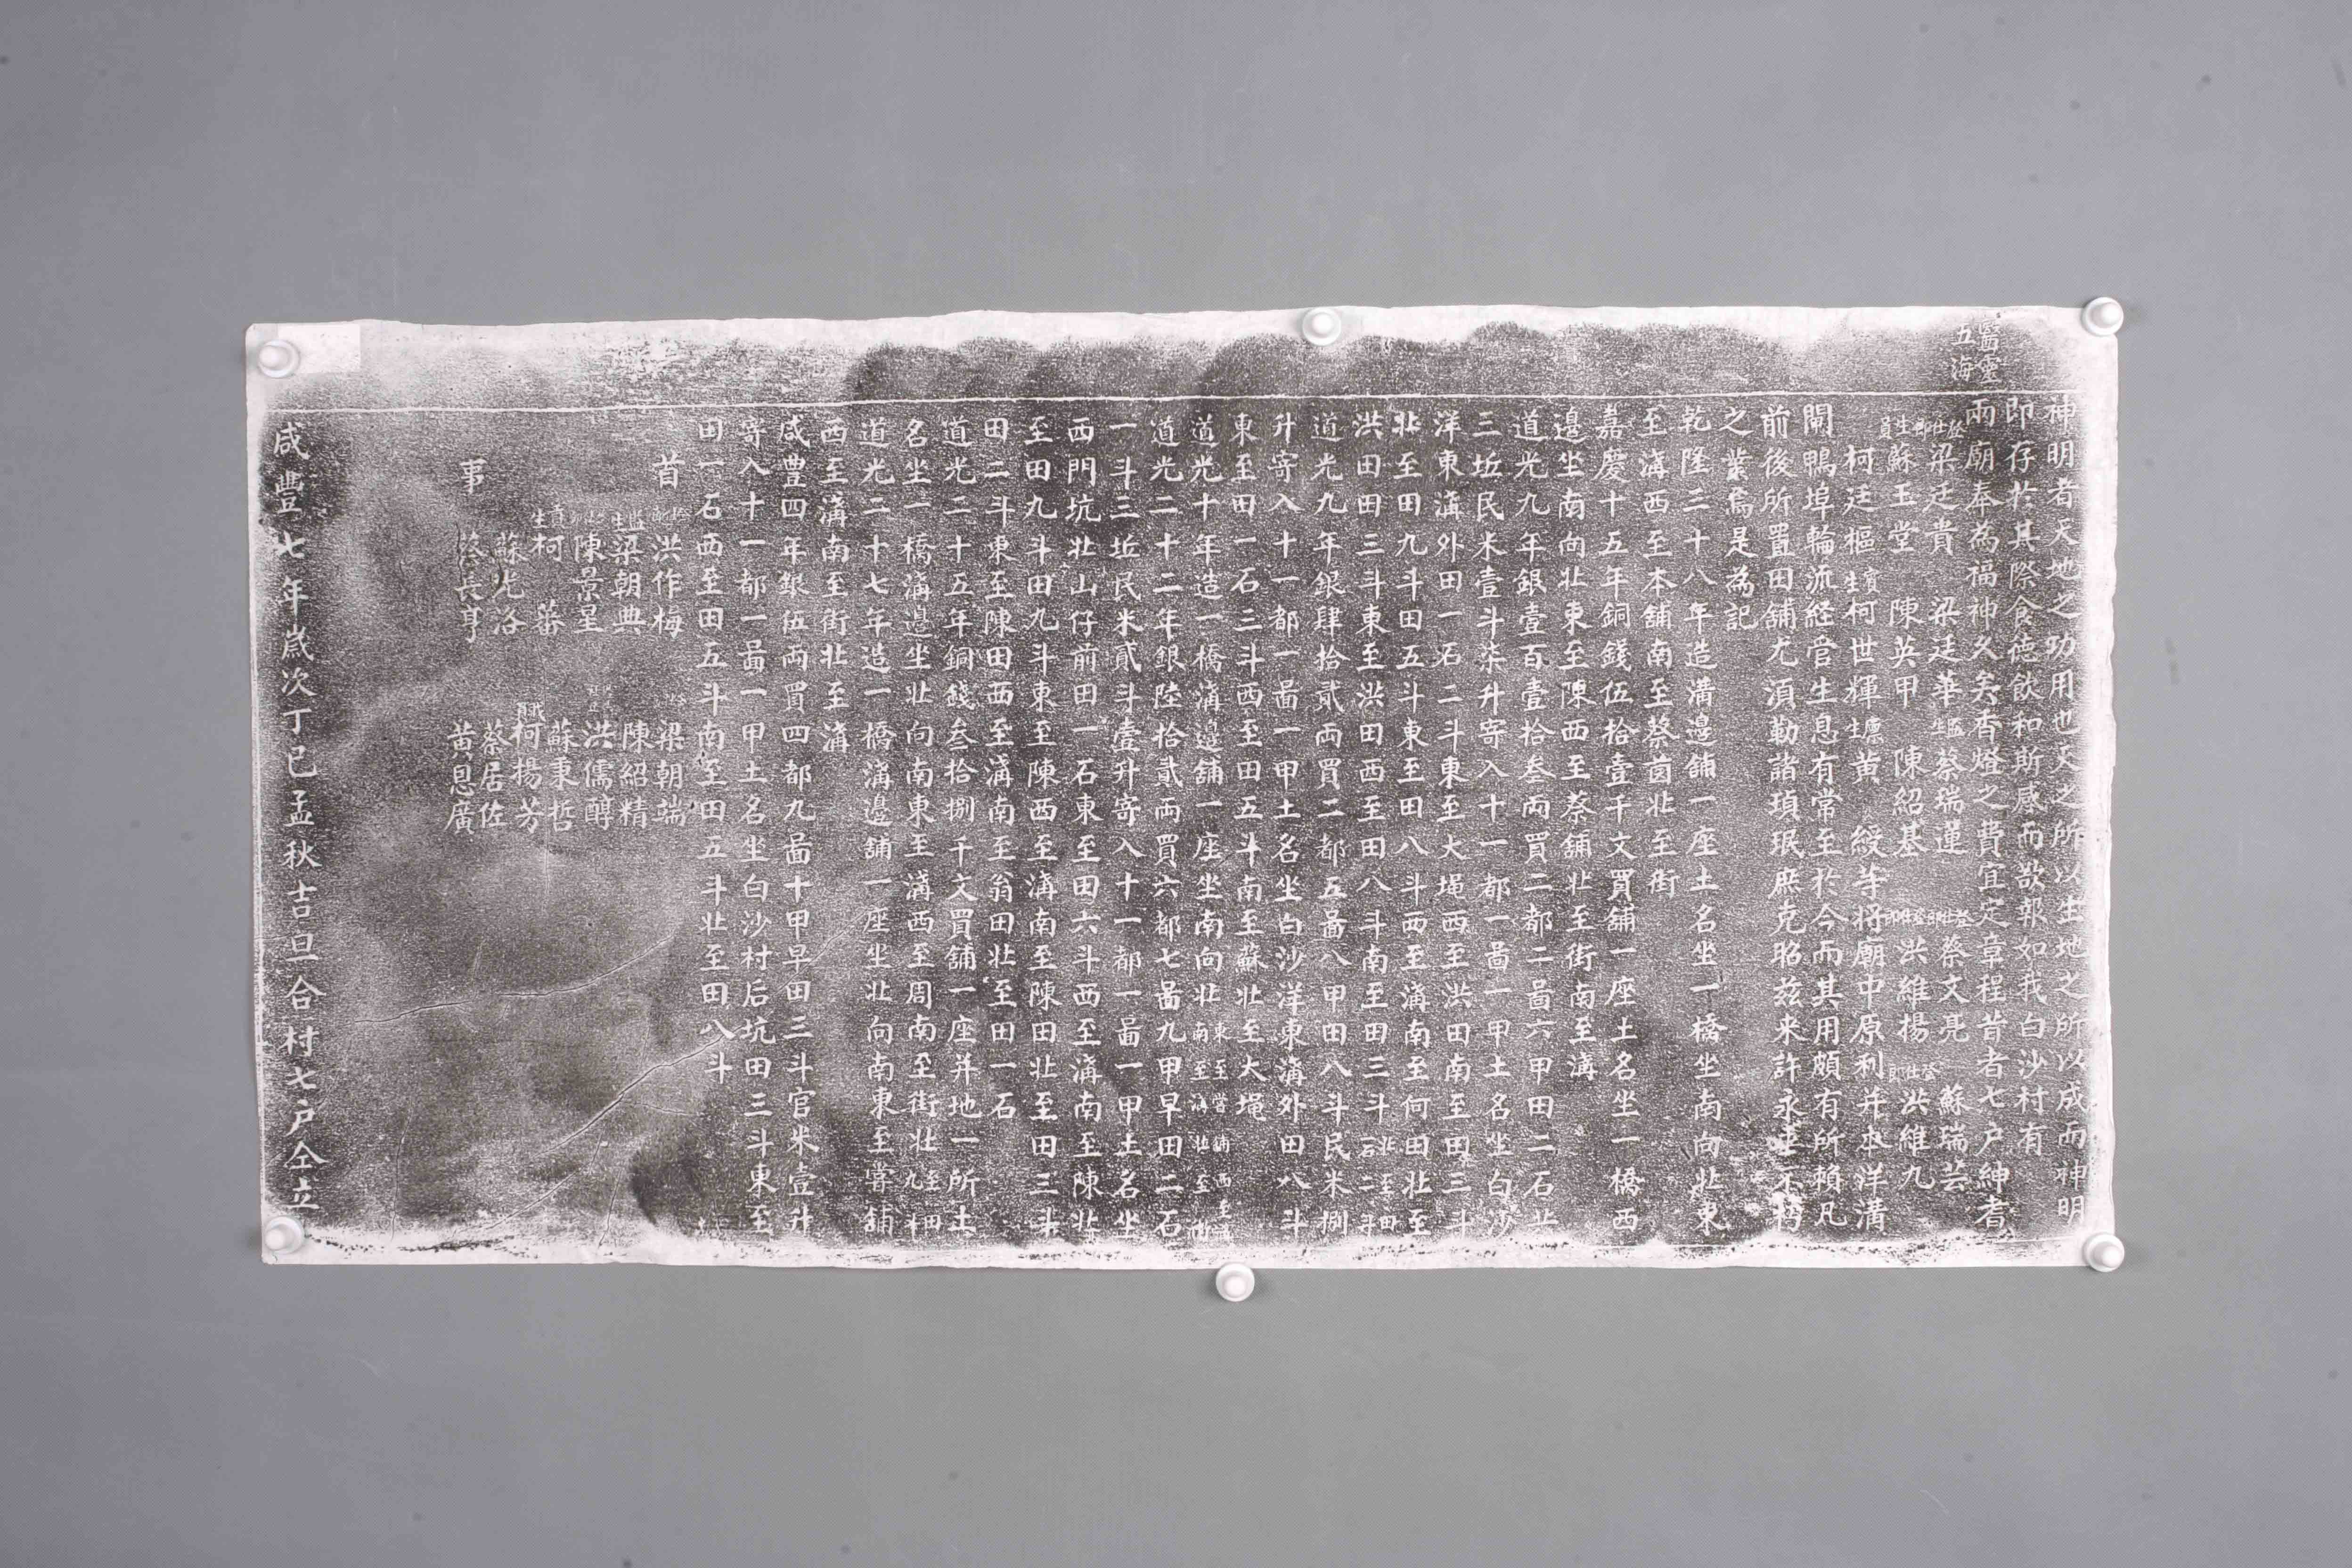 神明者天地之功用也天之所以生地之所以成而神明
即存於其際食德飲和斯感而欲報如我白沙村有
醫靈
五海
兩廟奉為福神久矣香燈之費宜定章程昔者七户紳耆
登仕郎梁廷貴 梁廷華 監生蔡瑞蘧 登仕郎蔡文亮 蘇瑞芸
生員蘇玉堂 陳英甲 陳紹基 登仕郎洪維楊 登仕郎洪維九
柯廷樞 賓生柯世輝 廩生黃 綬等将廟中原利并本洋溝
閘鴨埠輪流経管生息有常至於今而其用頗有所賴凡
前後所置田舖尤湏勤諸瑱珉庶克昭兹来許永垂不朽
之業焉是為記
乾隆三十八年造溝邊舖一座土名坐一橋坐南向北東
至溝西至本舖南至蔡茵北至街
嘉慶十五年銅錢伍拾壹千文買舖一座土名坐一橋西
邊坐南向北東至陳西至蔡舖北至街南至溝
道光九年銀壹百壹拾叁両買二都二啚六甲田二石
三坵民米壹斗柒升寄入十一都一啚一甲土名坐白沙
洋東溝外田一石二斗東至大埕西至洪田南至田三斗
北至田九斗田五斗東至田八斗西至溝南至何田北至
洪田田三斗東至洪田西至田八斗南至田三斗北至田一石二斗
道光九年銀肆拾貳両買二都五啚八甲田八斗民米捌
升寄入十一都一啚一甲土名坐白沙洋東溝外田八斗
東至田一石三斗西至田五斗南至蘇北至大埕
道光十年造一橋溝邊舖一座坐南向北東至嘗舖西至溝南至溝北至街
道光二十二年銀陸拾貳両買六都七啚九甲早田二石
一斗三坵民米貳斗壹升寄入十一都一啚一甲土名坐
西門坑北山仔前田一石東至田六斗西至溝南至陳北
至田九斗田九斗東至陳西至溝南至陳田北至田三斗
田二斗東至陳田西至溝南至翁田北至田一石
道光二十五年銅錢叁拾捌千文買舖一座并地一所土
名坐一橋溝邊坐北向南東至溝西至周南至街北至田九斗
道光二十七年造一橋溝邊舖一座坐北向南東至嘗舖
西至溝南至街北至溝
咸豊四年銀伍両買四都九啚十甲早田三斗官米壹升
寄入十一都一啚一甲土名坐白沙村后坑田三斗東至
田一石西至田五斗南至田五斗北至田八斗
首 洪作梅 梁朝端
監生梁朝典 陳紹精
陳景星 洪儒醇
貢生柯 蕃 蘇秉哲
蘇光洛 柯揚芳
事 蔡長亨 蔡居佐
黃恩廣
咸豐七年歲次丁巳孟秋吉旦合村七户仝立